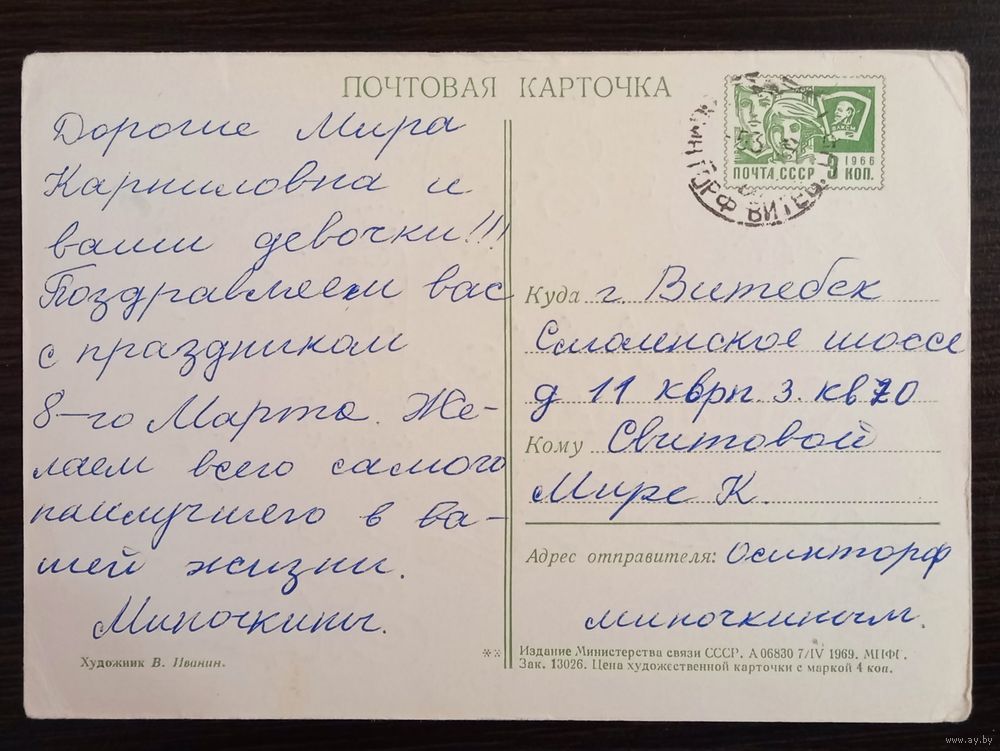 ПОЧТОВАЯ КАРТОЧКА
Дорогие Мира
Карниловна и
ваши девочки!!!
Поздравляем вас
с праздником
8-го Марта. Же-
лаем всего самого
наилучшего в ва-
шей жизни.
Миночкины.
Художник В. Иванин.
ВЛКСМ
1966
ПОЧТА СССР
3 КОП.
ОСИНТОРФ ВИТЕБ.
Куда г. Витебск
Смоленское шоссе
д 11 кврп. 3. кв 70
Кому Свитовой
Мире К.
Адрес отправителя: Осинторф
миночкиным.
Издание Министерства связи СССР. А 06830 7/IV 1969. МПФГ.
Зак. 13026. Цена художественной карточки с маркой 4 коп.
www.ay.by